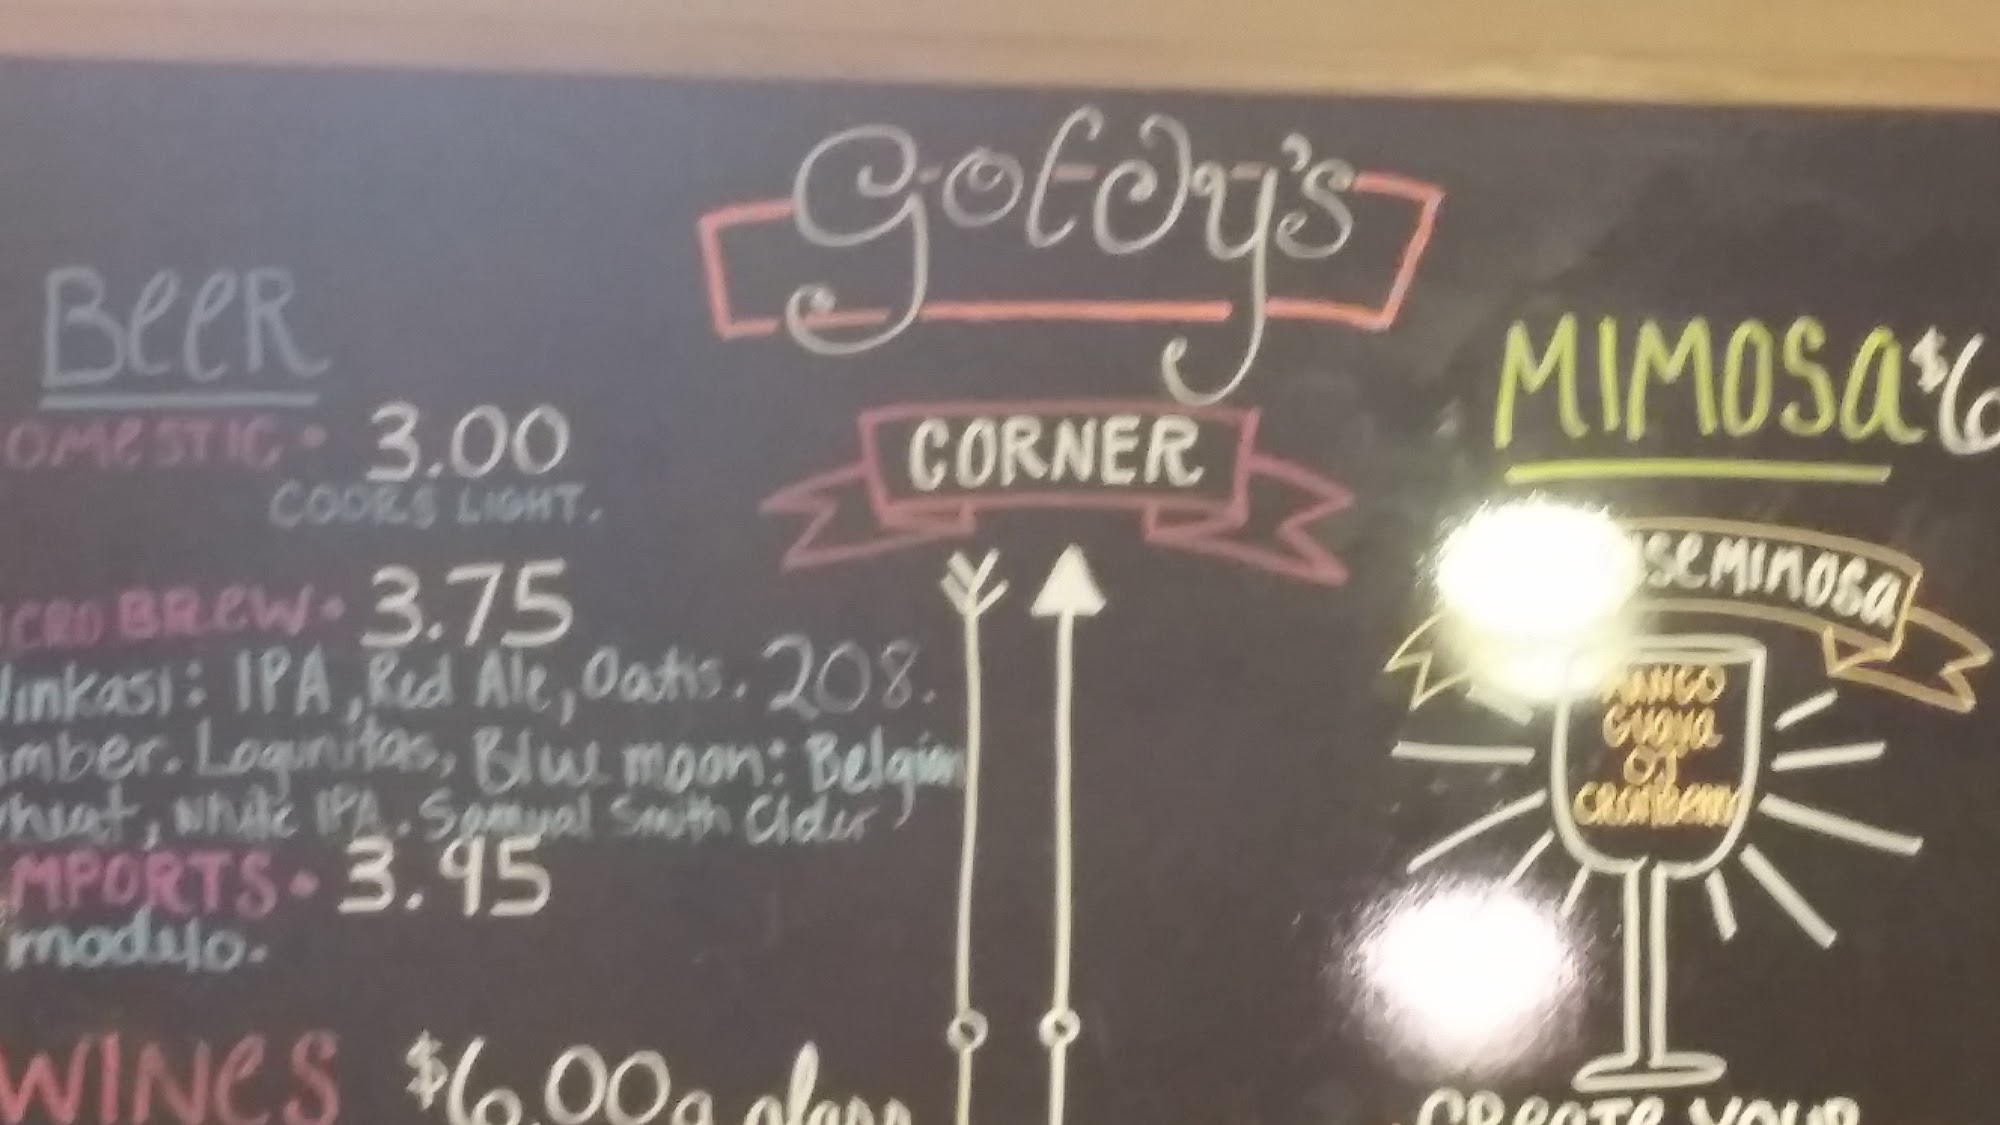 Goldy's
CORNER
Beer
OMESTIC • 3.00
COORS LIGHT.
ICRO BREW • 3.75
Ninkasi: IPA, Red Ale, Oatis. 208.
mber. Lagunitas, Blue moon: Belgian
heat, White IPA. Samual Smith Cider
IMPORTS • 3.95
modelo.
WINES $6.00 a glass
MIMOSA $6
SEMIMOSA
MANGO
GUAVA
OJ
CRANBERRY
CREATE YOUR